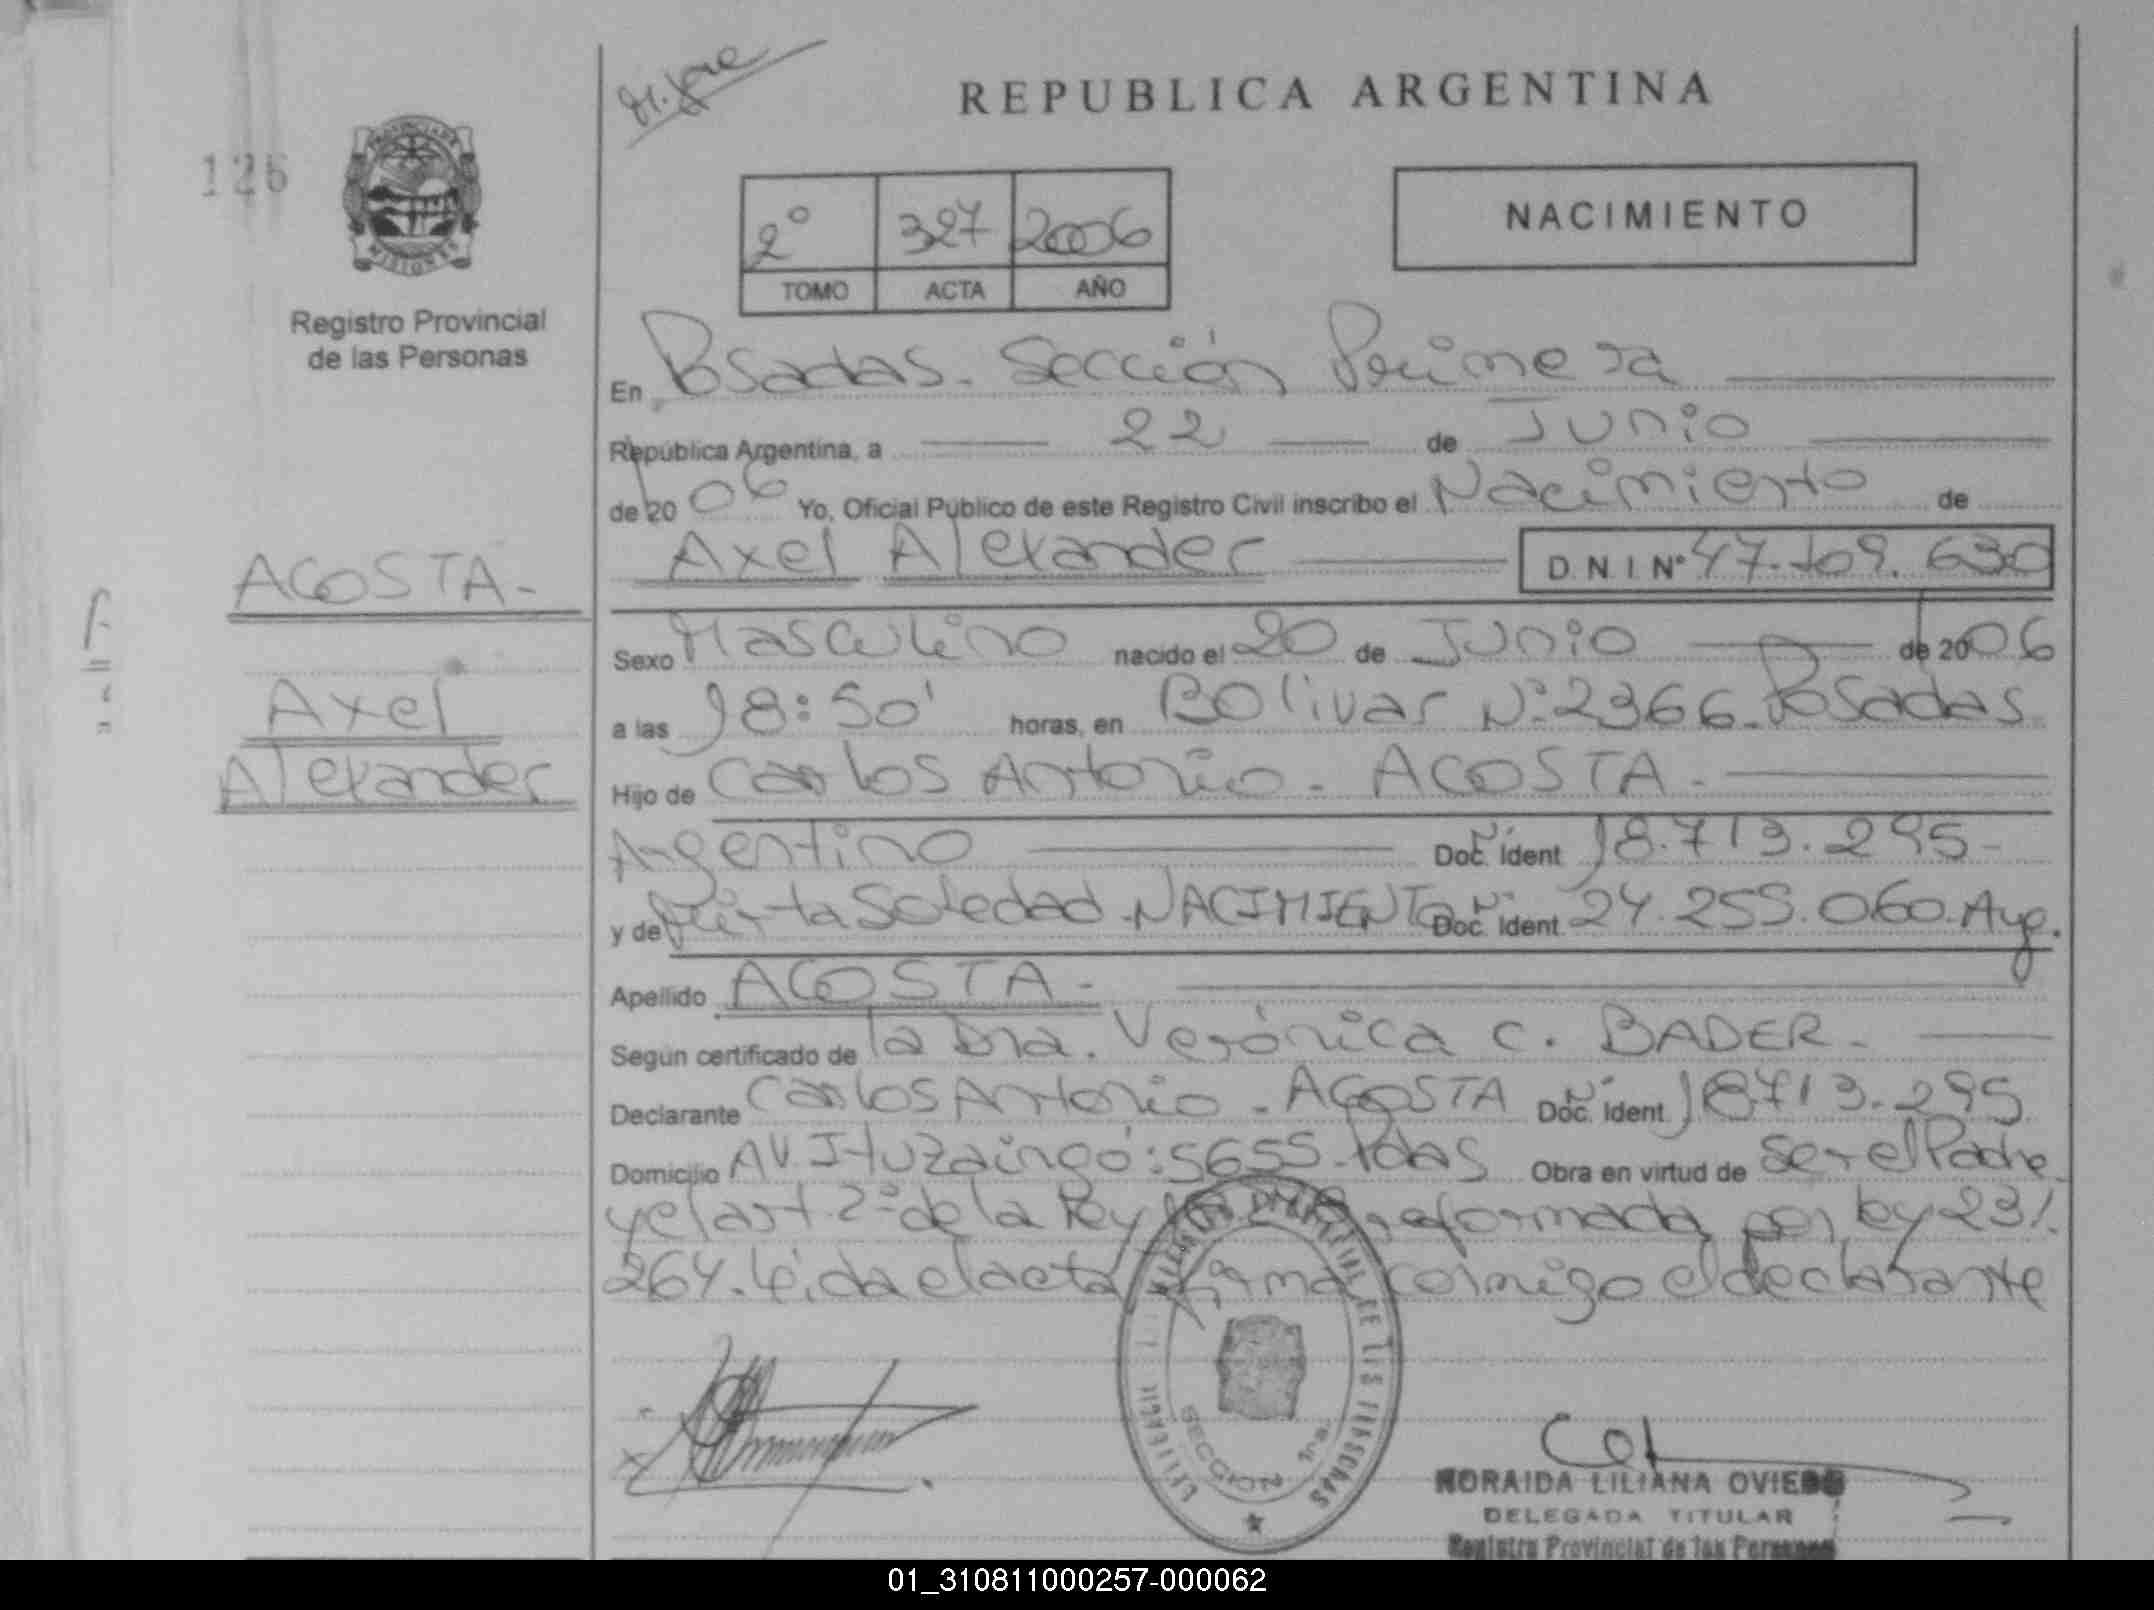 REPUBLICA ARGENTINA
126
PROVINCIA DE
MISIONES
Registro Provincial
de las Personas
2° 327 2006
TOMO ACTA AÑO
NACIMIENTO
En Posadas. Sección Primera
República Argentina, a 22 de Junio
de 20 06 Yo, Oficial Público de este Registro Civil inscribo el Nacimiento de
Axel Alexander D.N.I. Nº 47.109.630
ACOSTA-
Axel
Alexander
Sexo Masculino nacido el 20 de Junio de 2006
a las 18:50' horas, en Bolivar Nº 2366. Posadas
Hijo de Carlos Antonio - ACOSTA-
Argentino Doc. Ident Nº 18.713.295-
y de Mirta Soledad - NACIMIENTO Doc. Ident Nº 24.255.060. Arg.
Apellido ACOSTA-
Según certificado de la Dra. Verónica C. BADER-
Declarante Carlos Antonio - ACOSTA Doc. Ident Nº 18713.295
Domicilio AV. Ituzaingó: 5655- Pdas Obra en virtud de ser el Padre
y el art. 2º de la Ley reformada por ley 23/.
264. Leida el acta firma conmigo el declarante
SECCION 1ra.
NORAIDA LILIANA OVIEDO
DELEGADA TITULAR
Registro Provincial de las Personas
01_310811000257-000062